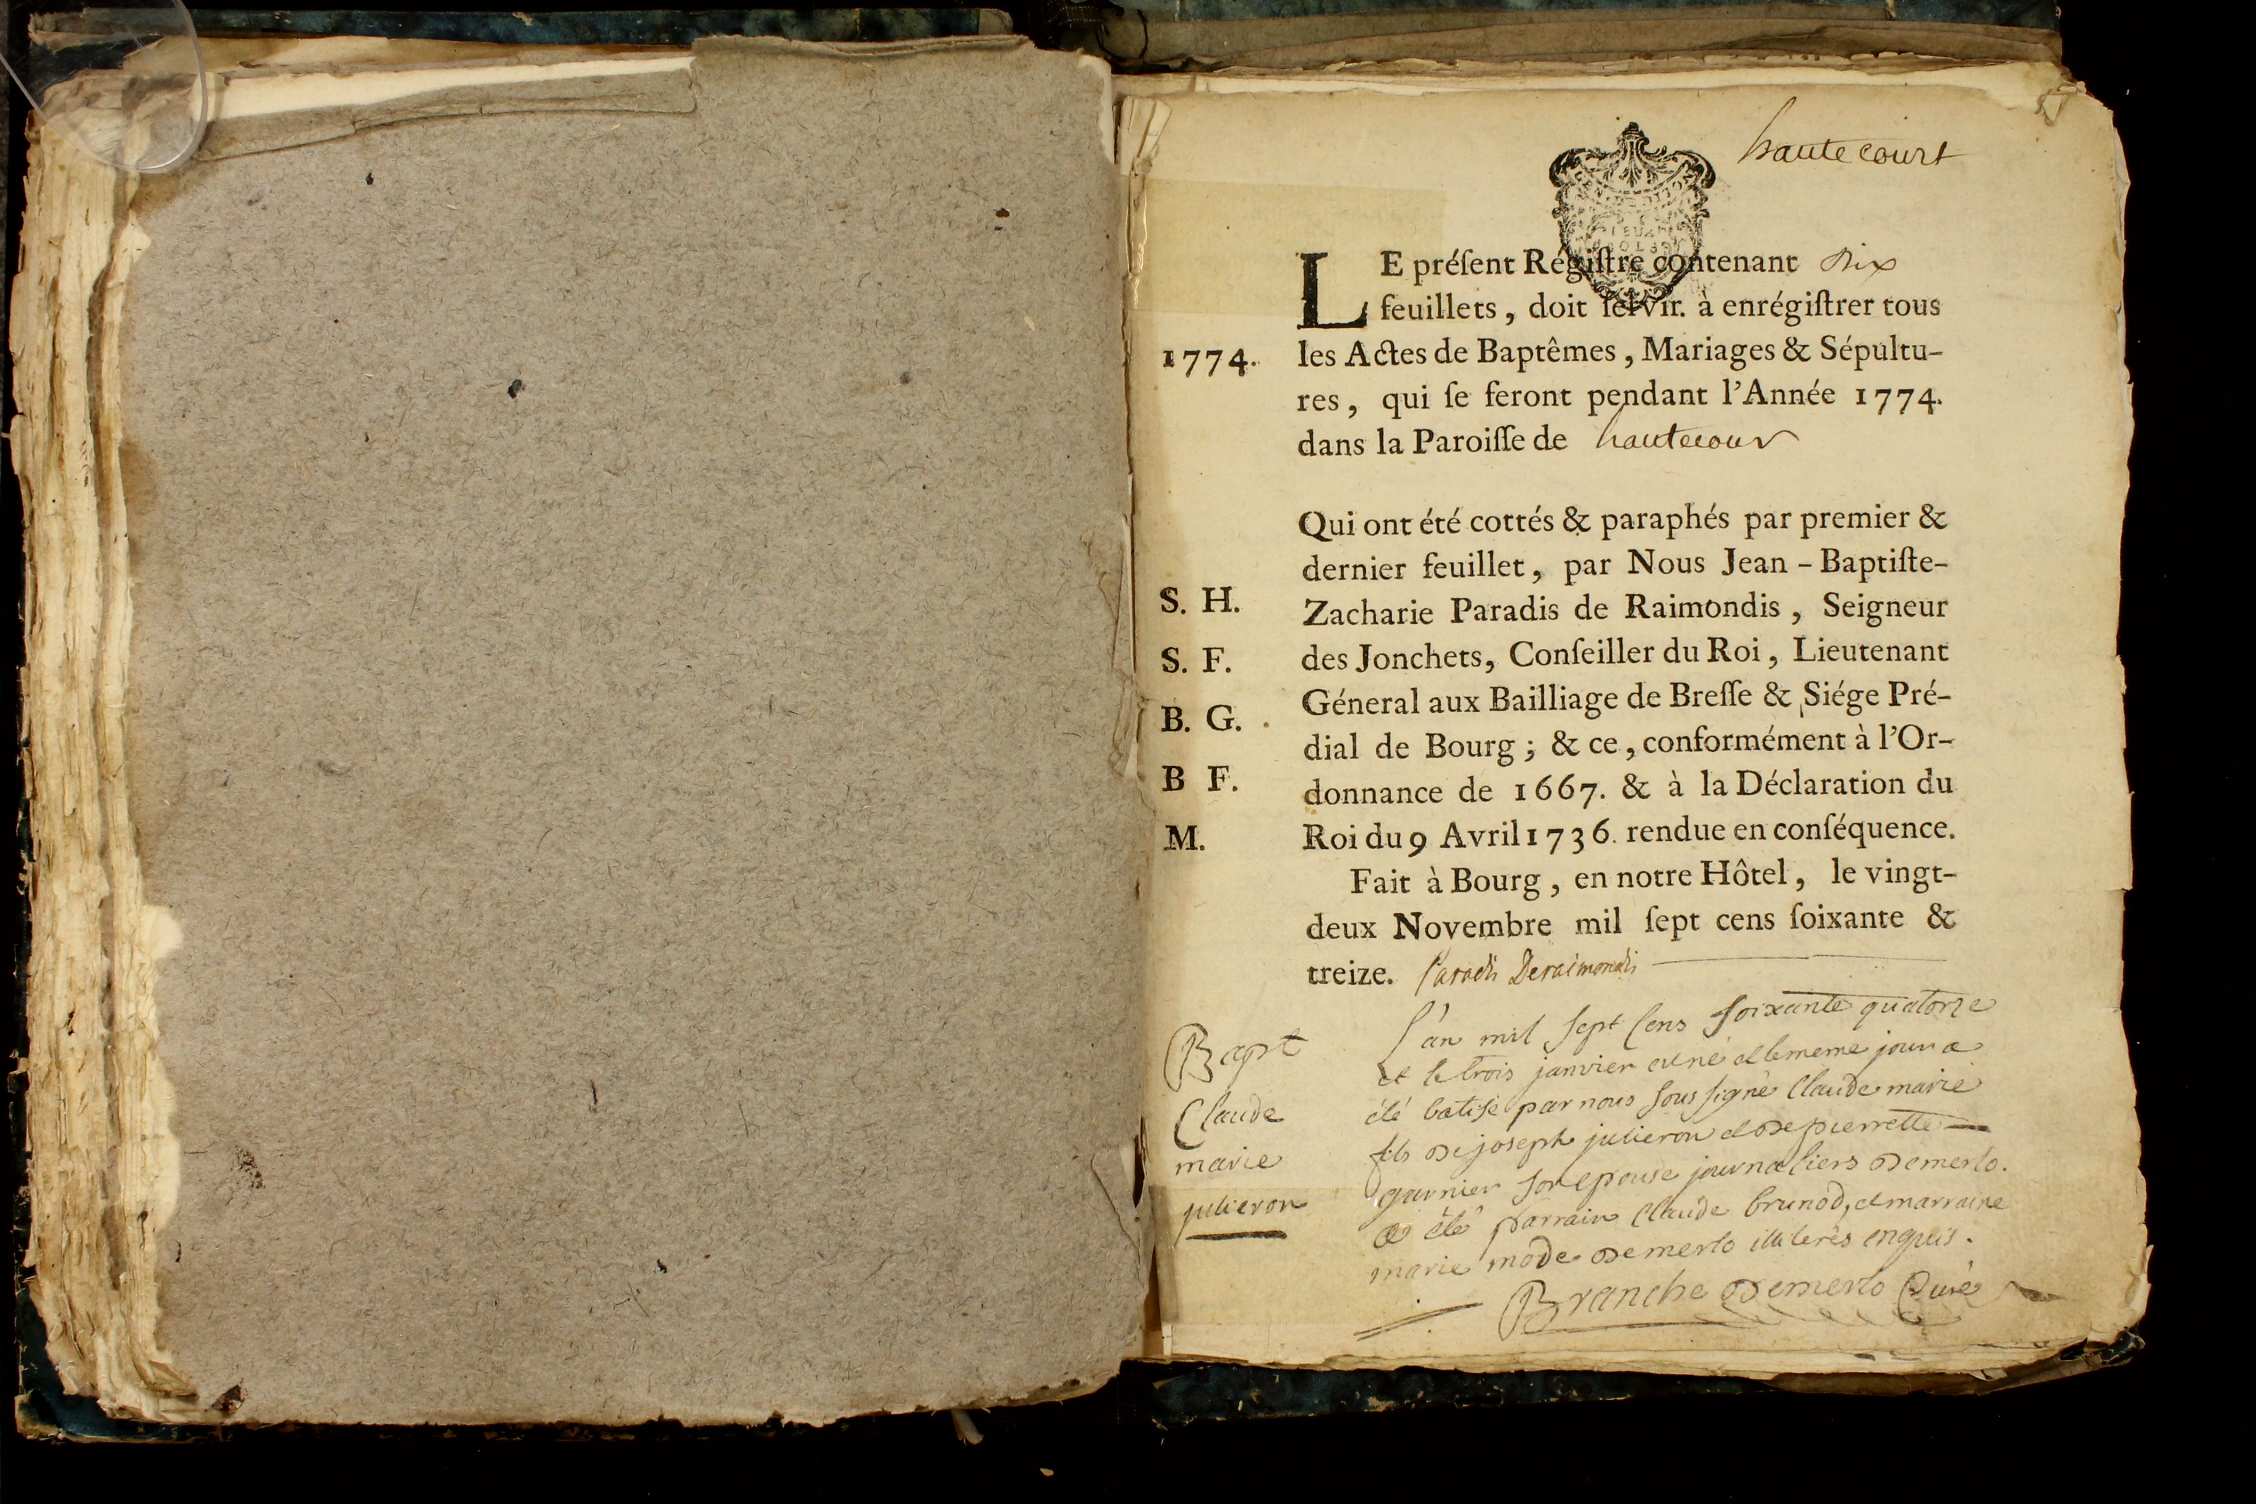 haute court
LE préſent Régiſtre contenant dix
feuillets, doit ſervir. à enrégiſtrer tous
1774. les Actes de Baptêmes, Mariages & Sépultu-
res, qui ſe feront pendant l'Année 1774.
dans la Paroiſſe de hautecour
Qui ont été cottés & paraphés par premier &
dernier feuillet, par Nous Jean-Baptiſte-
S. H. Zacharie Paradis de Raimondis, Seigneur
S. F. des Jonchets, Conſeiller du Roi, Lieutenant
B. G. Géneral aux Bailliage de Breſſe & Siége Pré-
dial de Bourg; & ce, conformément à l'Or-
B F. donnance de 1667. & à la Déclaration du
M. Roi du 9 Avril 1736. rendue en conſéquence.
Fait à Bourg, en notre Hôtel, le vingt-
deux Novembre mil ſept cens ſoixante &
treize. Paradis Deraimondis
Bapt
Claude
marie
julieron
L'an mil sept cens soixante quatorze
et le trois janvier est né et le meme jour a
été batisé par nous sous signé Claude marie
fils de joseph julieron et de pierrette
garnier son epouse journaliers de merlo.
a été parrain Claude brunod, et marraine
marie mode de merlo illiterés enquis.
Branche Demerlo Curé